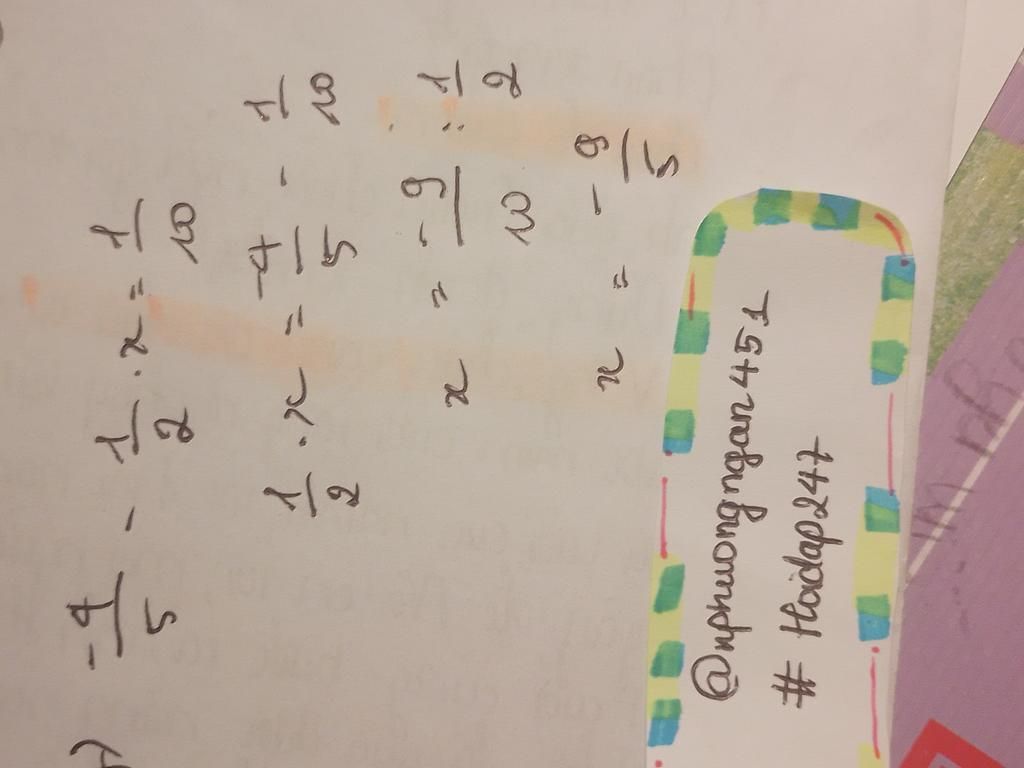 ) -4/5 - 1/2 . x = 1/10
1/2 . x = -4/5 - 1/10
x = -9/10 : 1/2
x = -9/5
@nphuongngan451
# Hoidap247